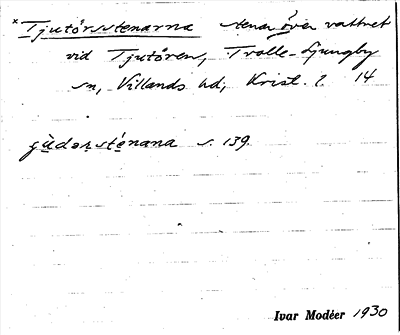 * Tjutörsstenarna stenar över vattnet
vid Tjutören, Trolle-Ljungby
sn, Villands hd, Krist. l. 14
s. 139.
Ivar Modéer 1930